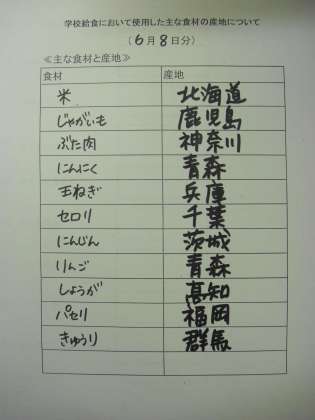 学校給食において使用した主な食材の産地について
(6月8日分)
≪主な食材と産地≫
食材 産地
米 北海道
じゃがいも 鹿児島
ぶた肉 神奈川
にんにく 青森
玉ねぎ 兵庫
セロリ 千葉
にんじん 茨城
りんご 青森
しょうが 高知
パセリ 福岡
きゅうり 群馬